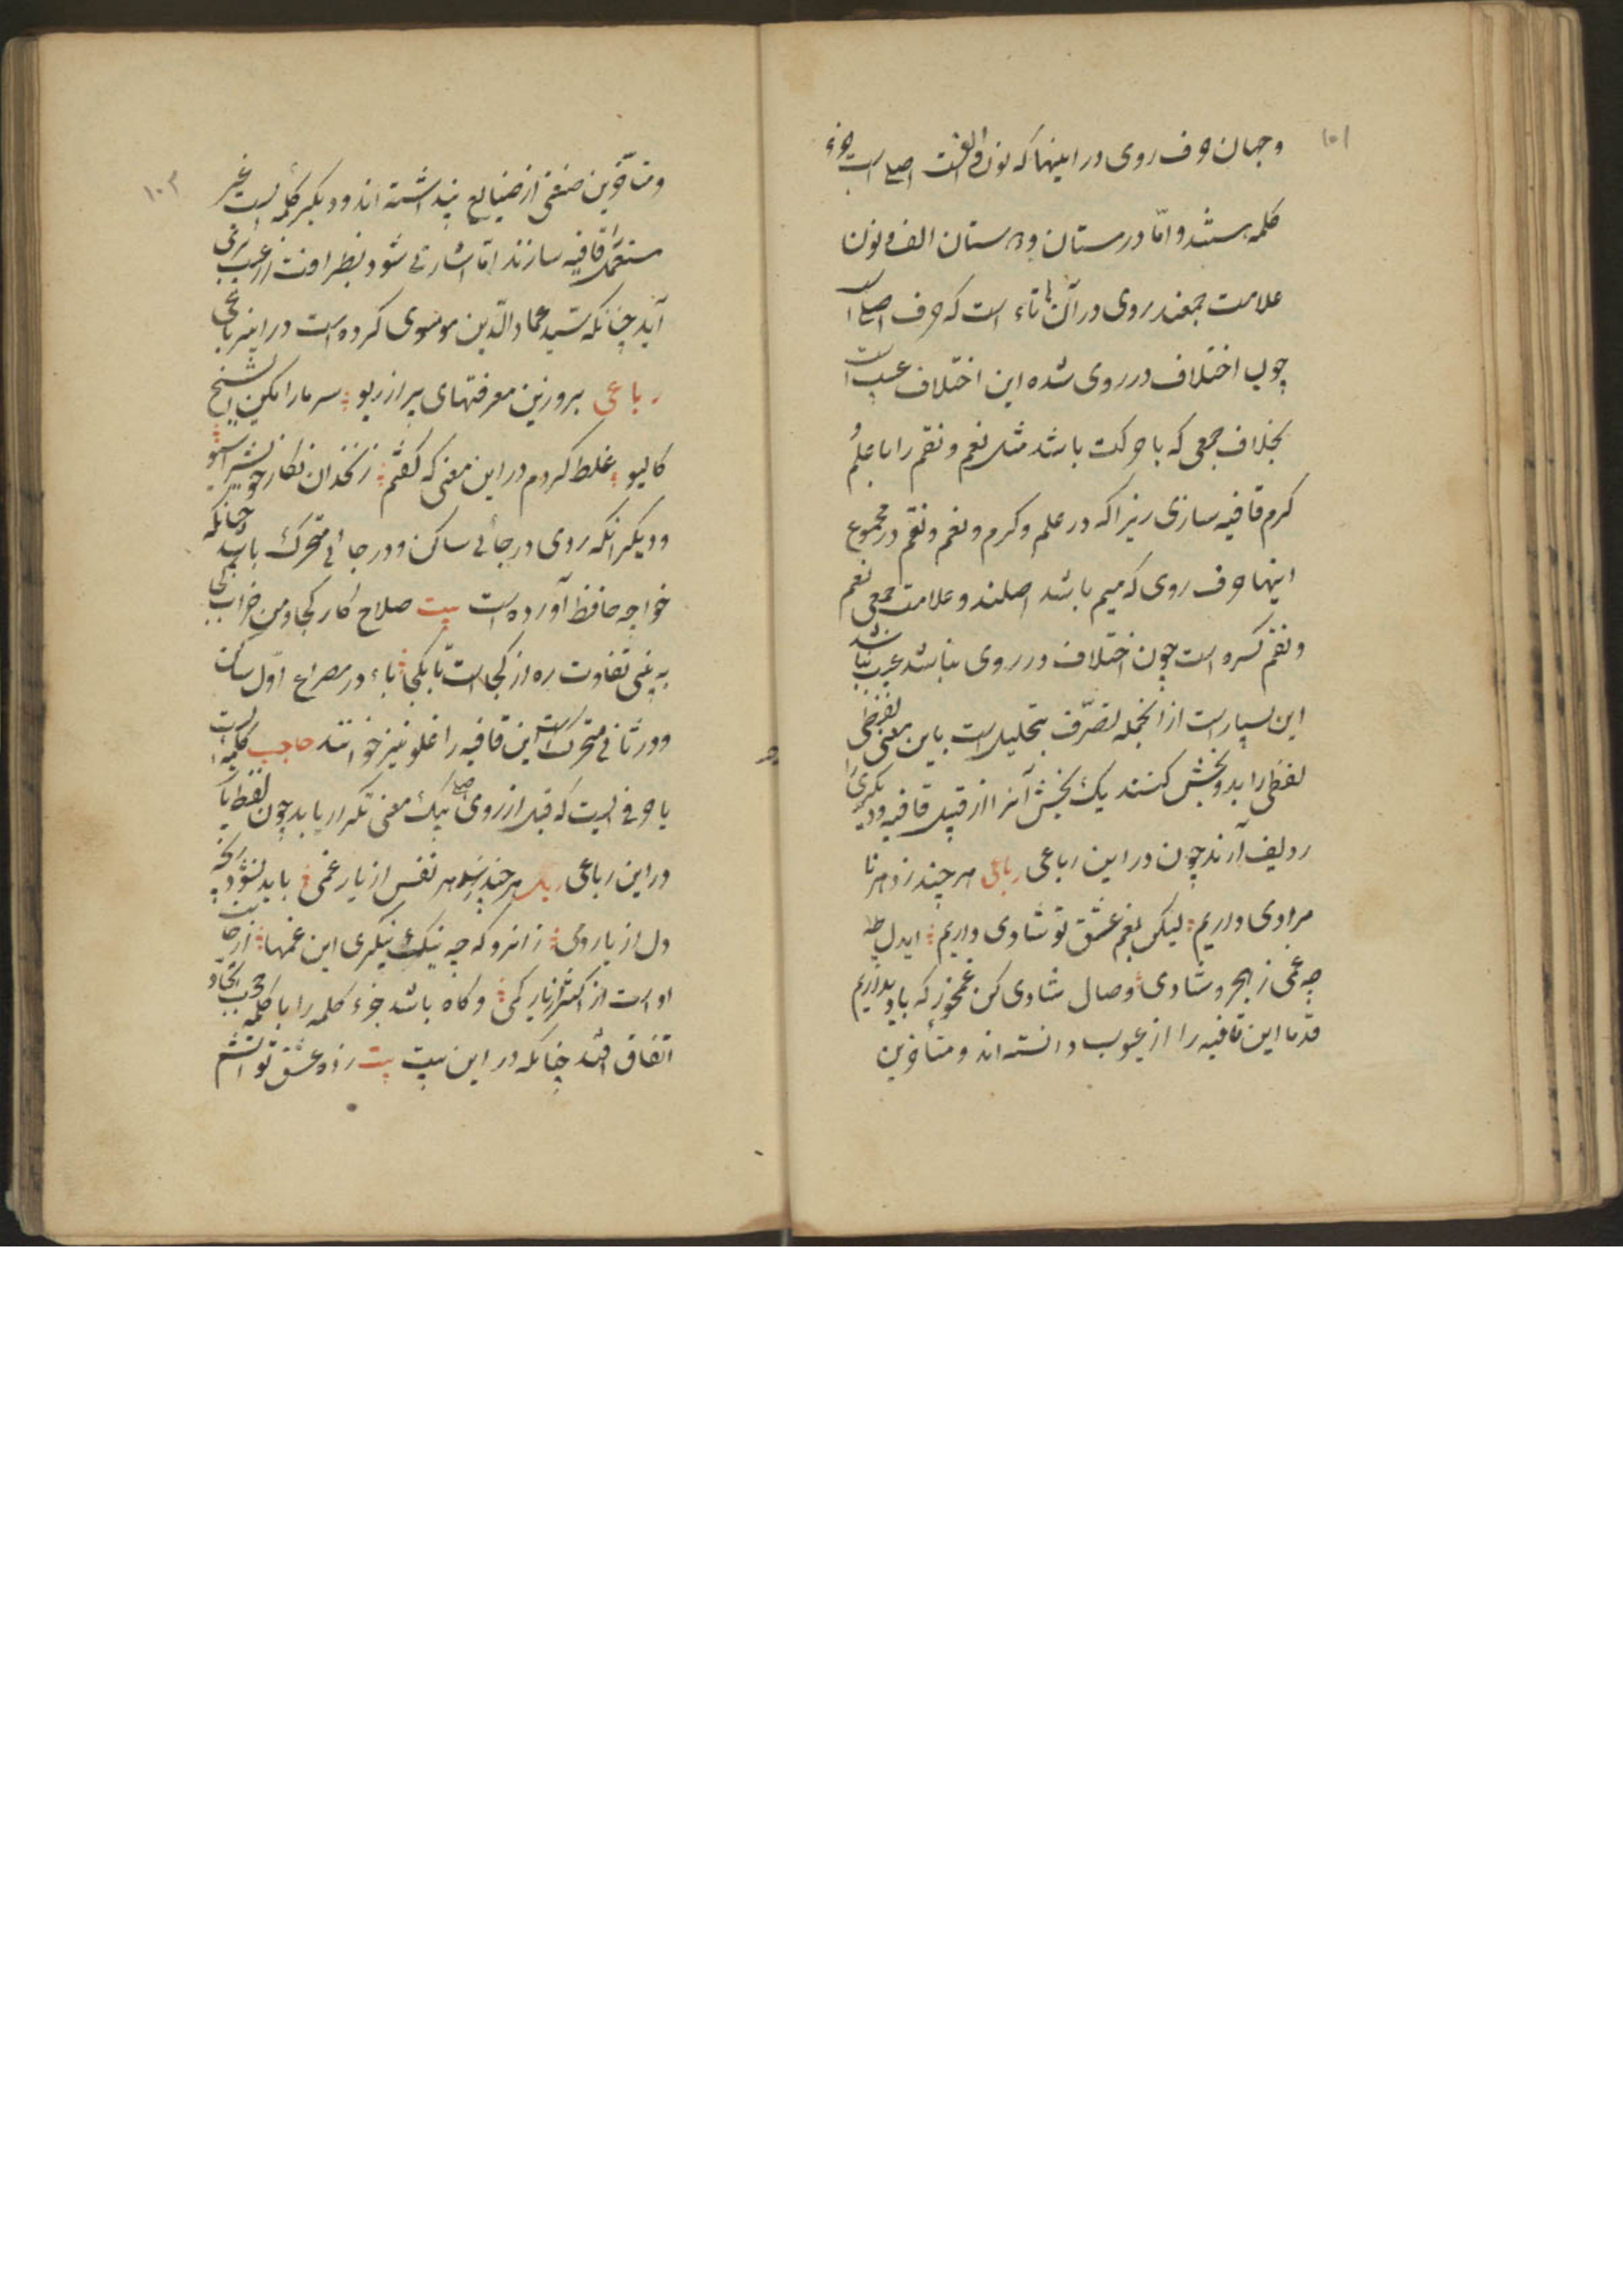 ۱۰۱
وجهان حرف روی در اینها که نون و الفست اصلی است جزء
کلمه هستند و اما درستان و استان الف و نون
علامت جمعند روی در آن تاء است که حرف اصلی است
چون اختلاف در روی شده این اختلاف عیب است
بخلاف جمعی که با حرکت باشد مثل نعم و نقم را با علم
کرم قافیه سازی زیرا که در علم و کرم و نعم و نقم در مجموع
اینها حرف روی که میم باشد اصلند و علامت جمعی نعم
و نقم کسره است چون اختلاف در روی نباشد عیب نباشد
این بسیار است از انجمله تصرف بتحلیل است باین معنی لفظی
لفظی را بدو بخش کنند یک بخش آنرا از قبیل قافیه و دیگری را
ردیف آرند چون در این رباعی رباعی هر چند ز دهر نا
مرادی داریم لیکن بغم عشق تو شادی داریم ایدل
چه غمی ز هجر و شادی وصال شادی کن غم مخور که یاد
قدما این قافیه را از عیوب دانسته اند و متأخرین
۱۰۲
و متأخرین صنفی از صنایع پنداشته اند و دیگر کلمه ایست غیر
مستعمل را قافیه سازند اما اشارتی شود بنظر افت از عیب برمی
آید چنانکه سید عماد الدین موسوی کرده است در این رباعی
رباعی برو زین معرفتهای پر از ریو سر ما را مکن شیخ
کالیو غلط کردم در این معنی که گفتم زنخدان نگار
و دیگر انکه روی در جائی ساکن و در جائی متحرک باشد چنانکه
خواجه حافظ آورده است بیت صلاح کار کجا و من خراب کجا
ببین تفاوت ره از کجاست تا بکجا باء در مصراع اول ساکن
و در ثانی متحرک است این قافیه را غلو نیز خوانند حاجب کلمه ایست
یا حرفی است که قبل از روی اصلی بیک معنی تکرار یابد چون لفظ یار
در این رباعی هر چند رسد هر نفس از یار غمی باید نشود رنجه
دل از یار دمی زانرو که چه نیک بنگری این غمها از جانب
او است از اکثر از یار کمی و گاه باشد جزء کلمه را با کلمه بحسب اتحاد
اتفاق افتد چنانکه در این بیت بیت زد ه عشق تو آتشم